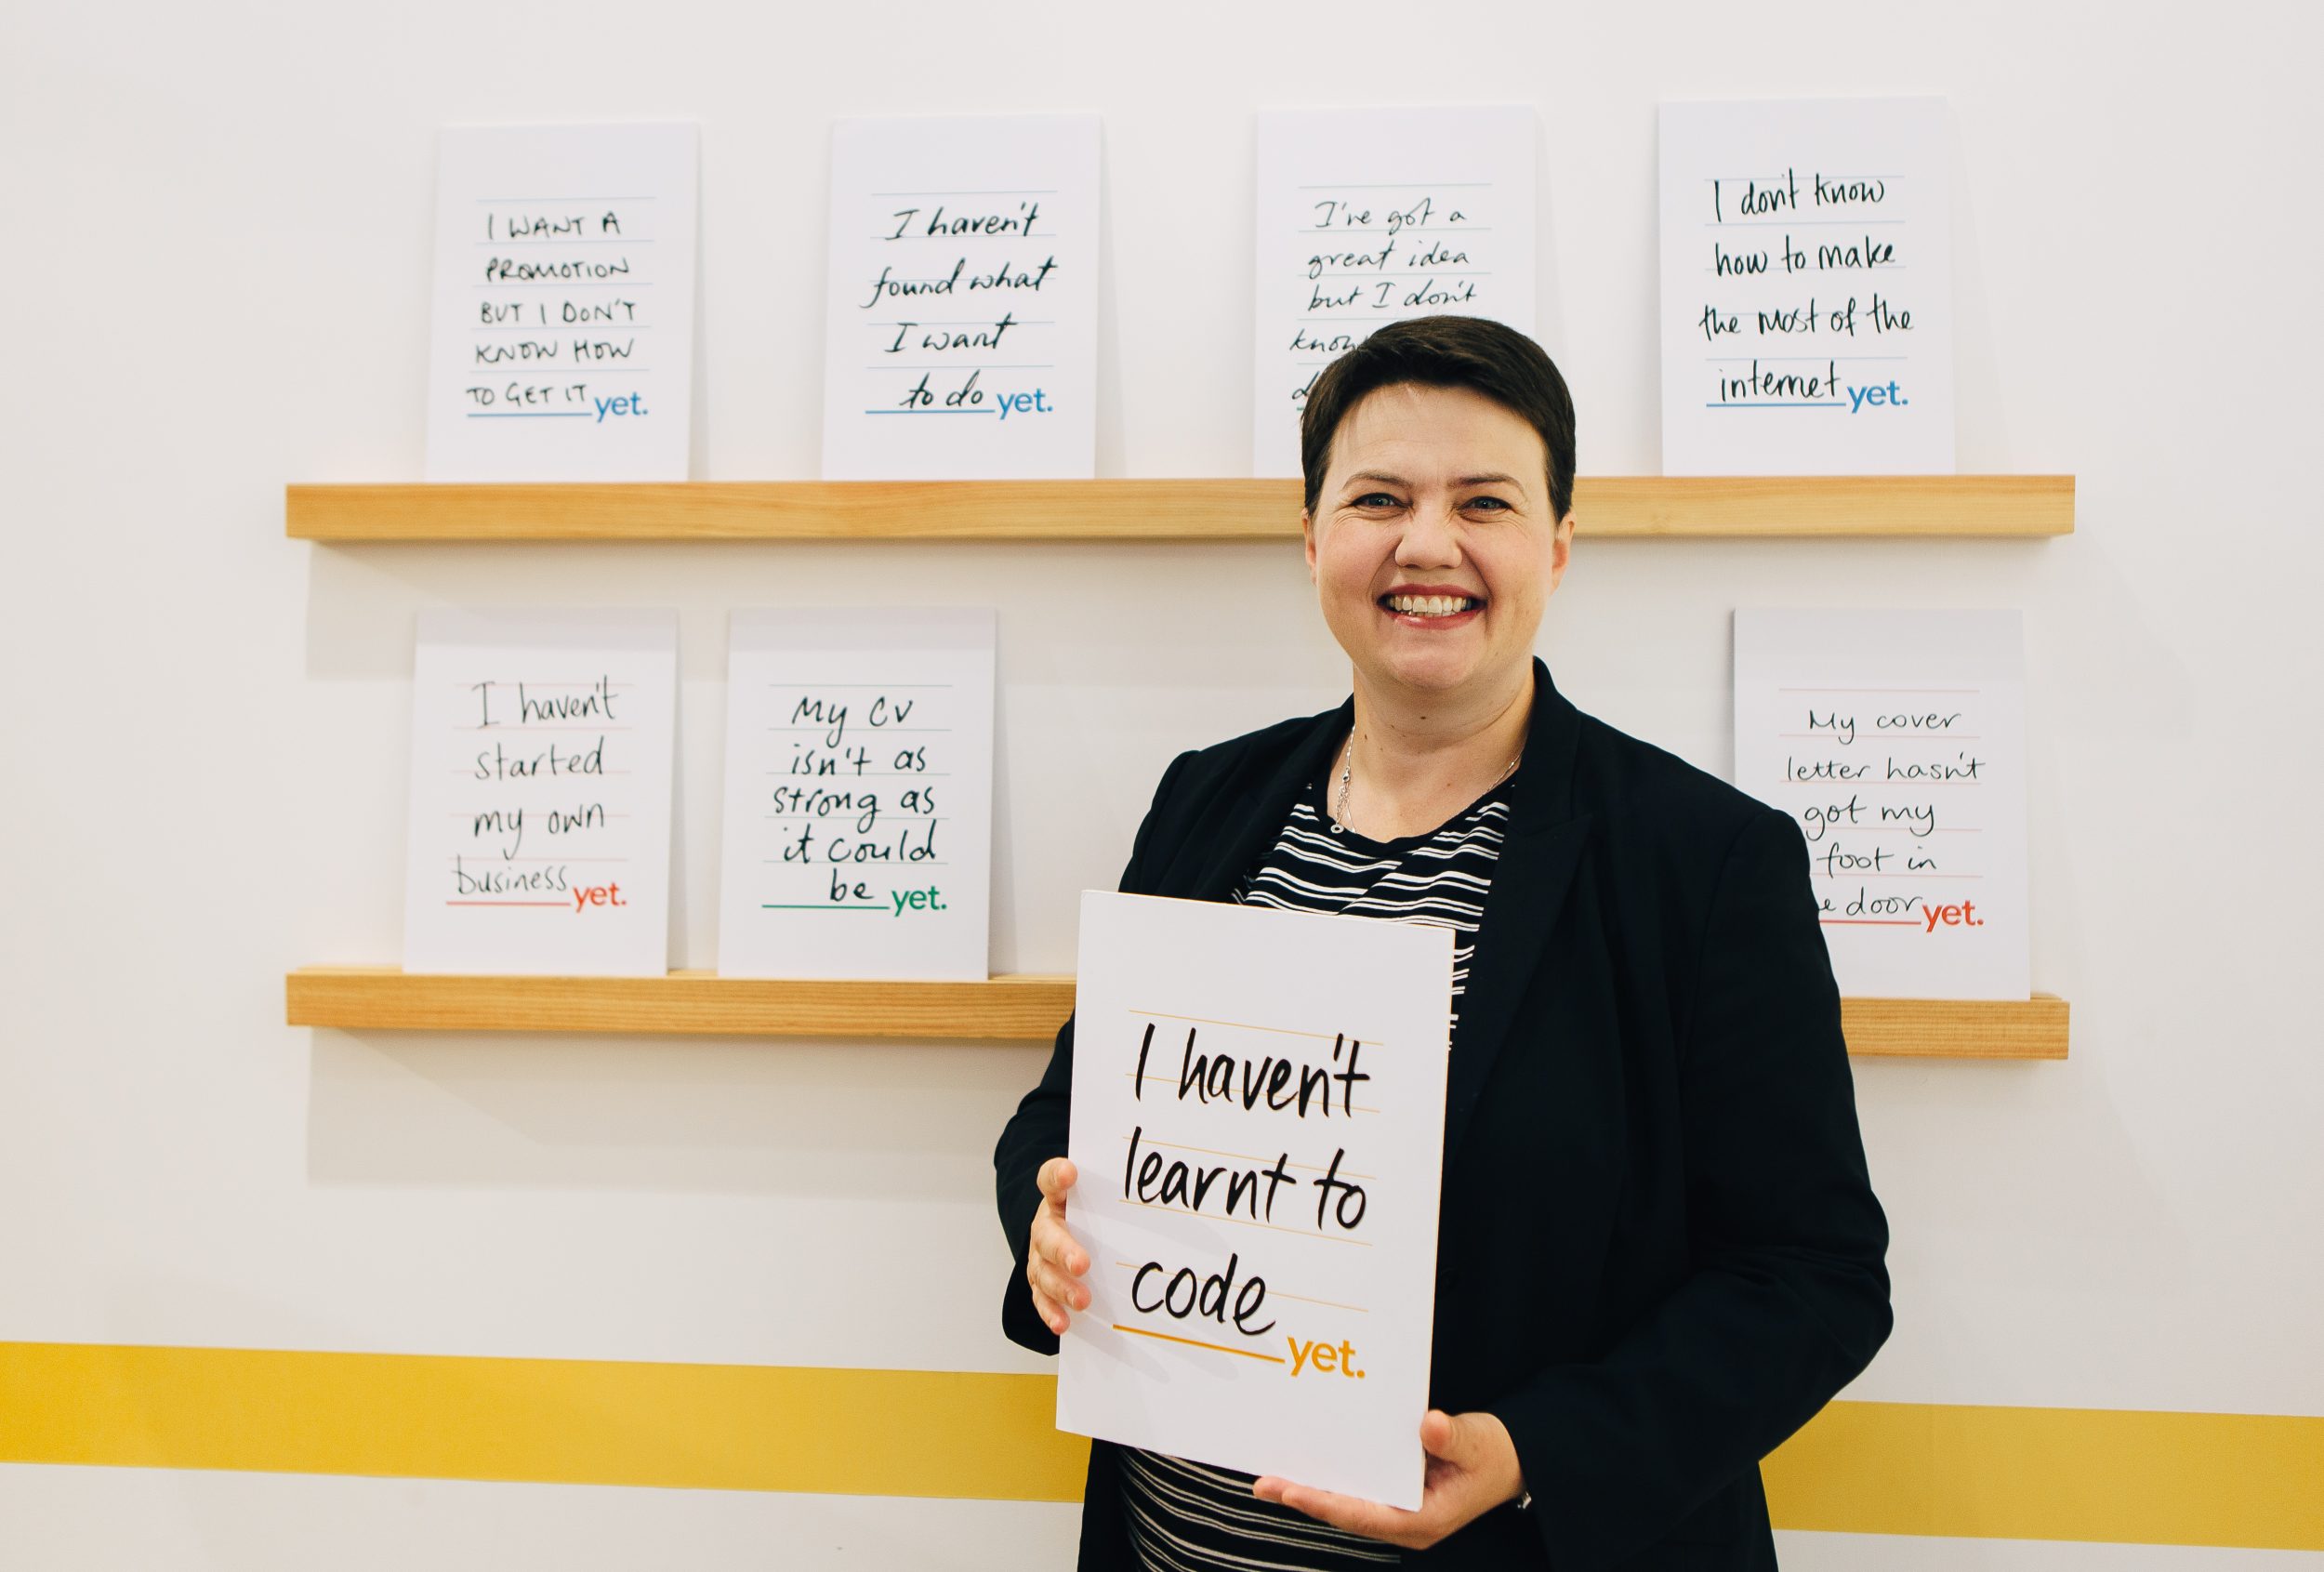 I WANT A
PROMOTION
BUT I DON'T
KNOW HOW
TO GET IT yet.
I haven't
found what
I want
to do yet.
I've got a
great idea
but I don't
I don't know
how to make
the most of the
internet yet.
I haven't
started
my own
business yet.
My CV
isn't as
strong as
it could
be yet.
I haven't
learnt to
code yet.
My cover
letter hasn't
got my
foot in
door yet.